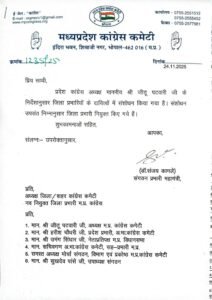 ई मेल - "कांग्रेस"
मध्यप्रदेश कांग्रेस कमेटी
इंदिरा भवन, शिवाजी नगर, भोपाल-462 016 (म.प्र.)
क्रमांक 1235/25
24.11.2025
प्रिय साथी,
प्रदेश कांग्रेस अध्यक्ष माननीय श्री जीतू पटवारी जी के
निर्देशानुसार जिला प्रभारियों के दायित्वों में संशोधन किया गया है। संशोधन
उपरांत निम्नानुसार जिला प्रभारी नियुक्त किए गये हैं।
शुभकामनाओं सहित,
आपका,
संलग्न:- उपरोक्तानुसार.
(डॉ.संजय कामले)
संगठन प्रभारी महामंत्री,
प्रति,
अध्यक्ष जिला/शहर कांग्रेस कमेटी
नव नियुक्त जिला प्रभारी म.प्र. कांग्रेस कमेटी
प्रति,
1. मान. श्री जीतू पटवारी जी, अध्यक्ष म.प्र. कांग्रेस कमेटी
2. मान. श्री हरीश चौधरी जी, प्रदेश प्रभारी, अ.भा.कांग्रेस कमेटी
3. मान. श्री उमंग सिंघार जी, नेताप्रतिपक्ष म.प्र. विधानसभा
4. मान. सचिवगण अ.भा.कांग्रेस कमेटी, सह-प्रभारी म.प्र.
5. समस्त अध्यक्ष मोर्चा संगठन, विभाग एवं प्रकोष्ठ म.प्र.कांग्रेस कमेटी
6. मान. श्री सुखदेव पांसे जी, उपाध्यक्ष संगठन